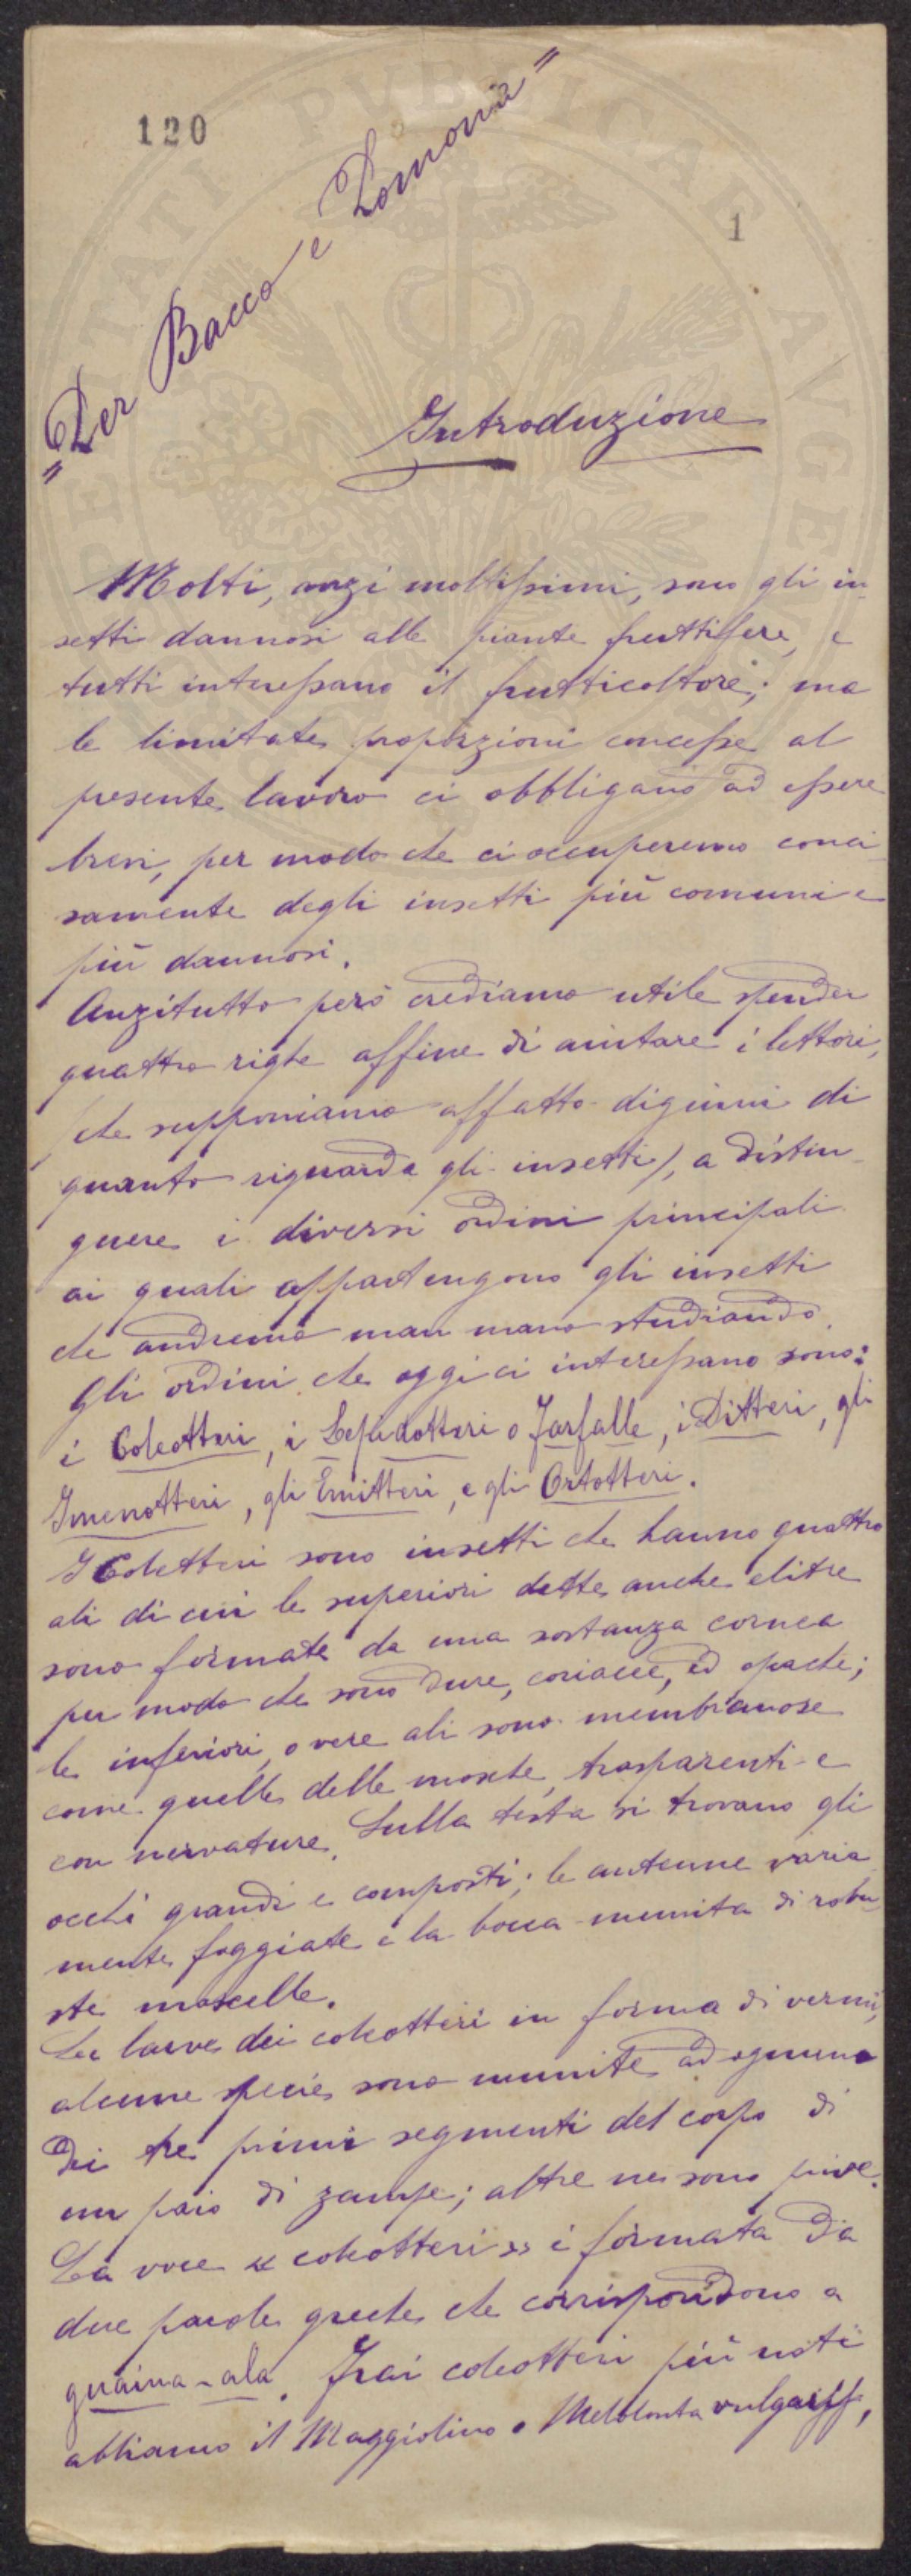 120
1
"Per Bacco e Pomona"
Introduzione
Molti, anzi moltissimi, sono gli in-
setti dannosi alle piante fruttifere, e
tutti interessano il frutticoltore; ma
le limitate proporzioni concesse al
presente lavoro ci obbligano ad essere
brevi, per modo che ci occuperemo conci-
samente degli insetti più comuni e
più dannosi.
Anzitutto però crediamo utile spender
quattro righe affine di aiutare i lettori,
(che supponiamo affatto digiuni di
quanto riguarda gli insetti), a distin-
guere i diversi ordini principali
ai quali appartengono gli insetti
che andremo man mano studiando.
Gli ordini che oggi ci interessano sono:
i Coleotteri, i Lepidotteri o Farfalle, i Ditteri, gli
Imenotteri, gli Emitteri, e gli Ortotteri.
I Coleotteri sono insetti che hanno quattro
ali di cui le superiori dette anche elitre
sono formate da una sostanza cornea
per modo che sono dure, coriacee, ed opache;
le inferiori, o vere ali sono membranose
come quelle delle mosche, trasparenti e
con nervature. Sulla testa si trovano gli
occhi grandi e composti; le antenne varia-
mente foggiate e la bocca munita di robu-
ste mascelle.
Le larve dei coleotteri in forma di vermi,
alcune specie sono munite ad ognuno
dei tre primi segmenti del corpo di
un paio di zampe; altre ne sono prive.
La voce « coleotteri » è formata da
due parole greche che corrispondono a
guaina-ala. Frai coleotteri più noti
abbiamo il Maggiolino o Melolonta vulgaris,